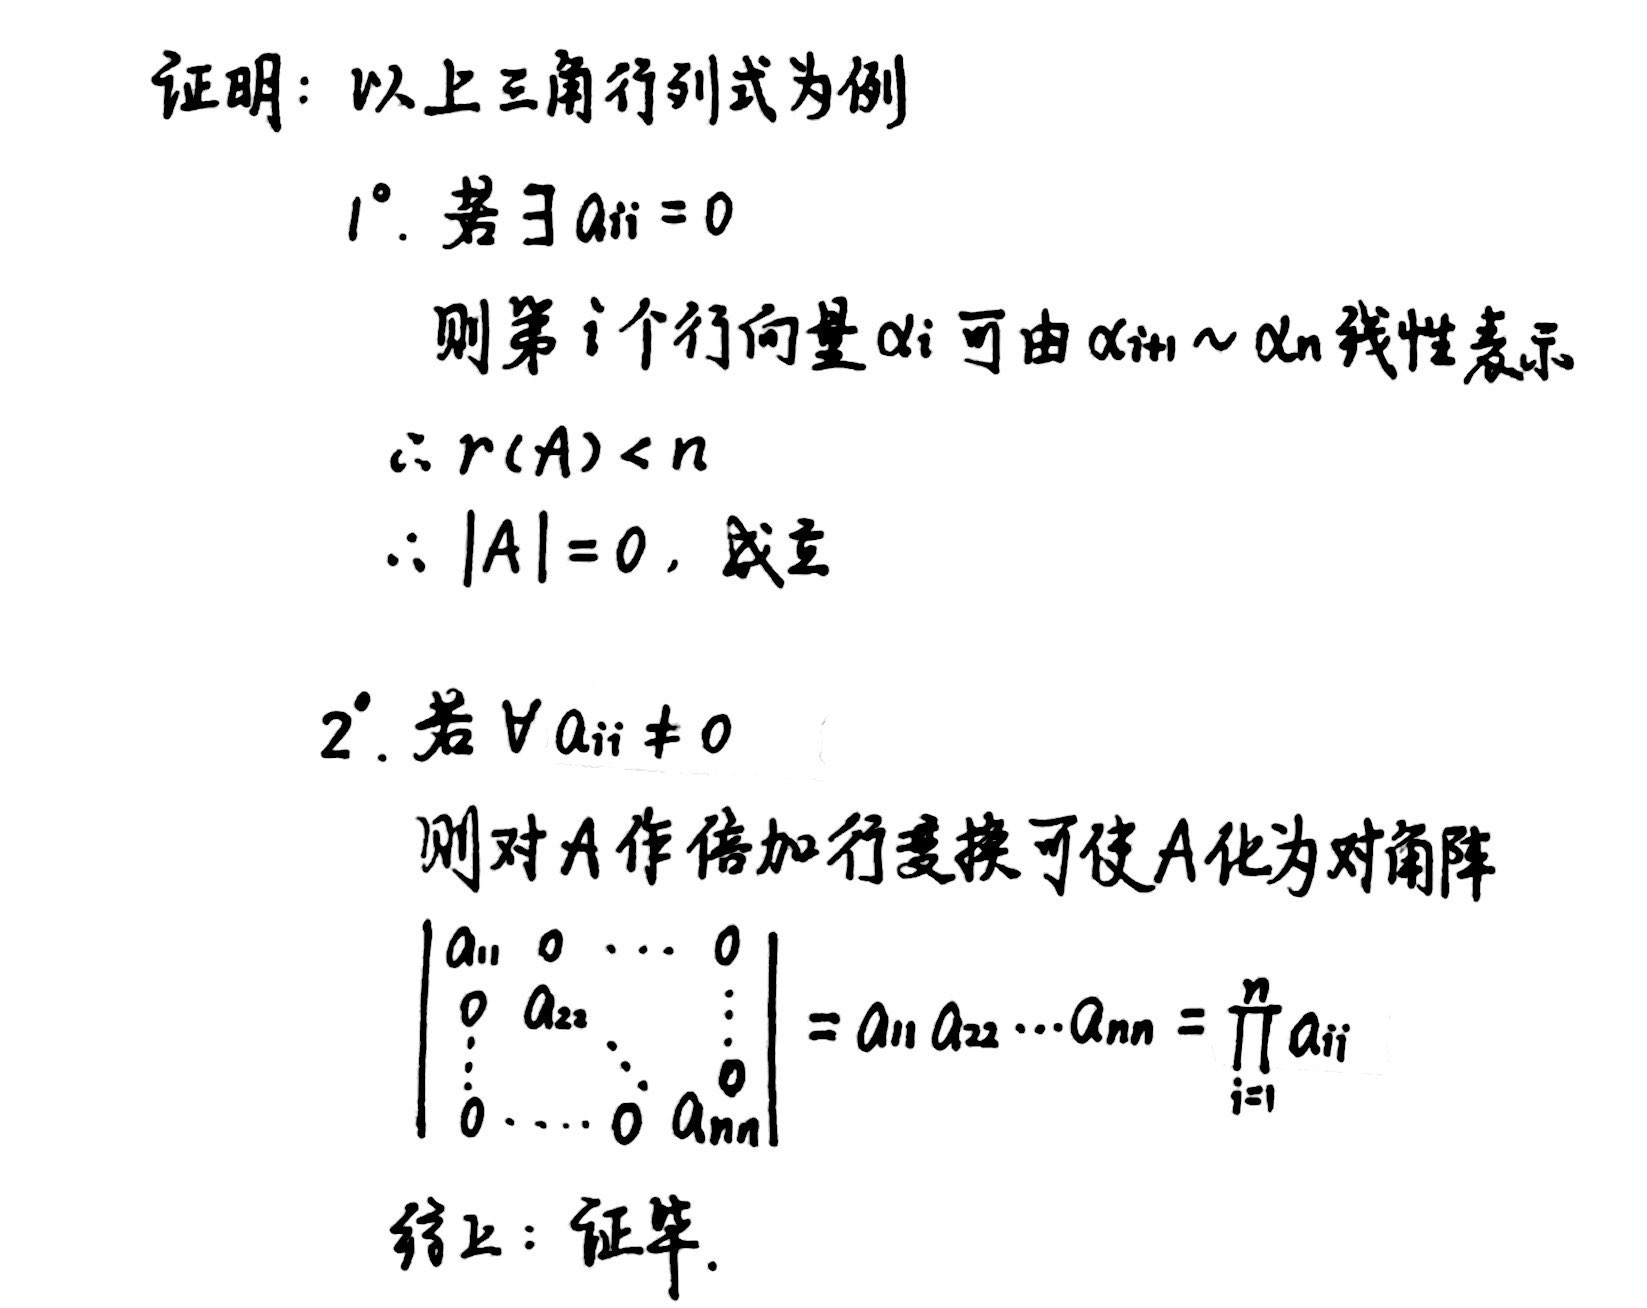 证明：以上三角行列式为例
1°. 若∃ aii = 0
则第 i 个行向量 αi 可由 αi+1 ~ αn 线性表示
∴ r(A) < n
∴ |A| = 0，成立
2°. 若 ∀ aii ≠ 0
则对 A 作倍加行变换可使 A 化为对角阵
| a11 0 ⋯ 0 |
| 0 a22 ⋱ ⋮ |
| ⋮ ⋱ 0 |
| 0 ⋯ 0 ann | = a11 a22 ⋯ ann = ∏_{i=1}^{n} aii
综上：证毕.